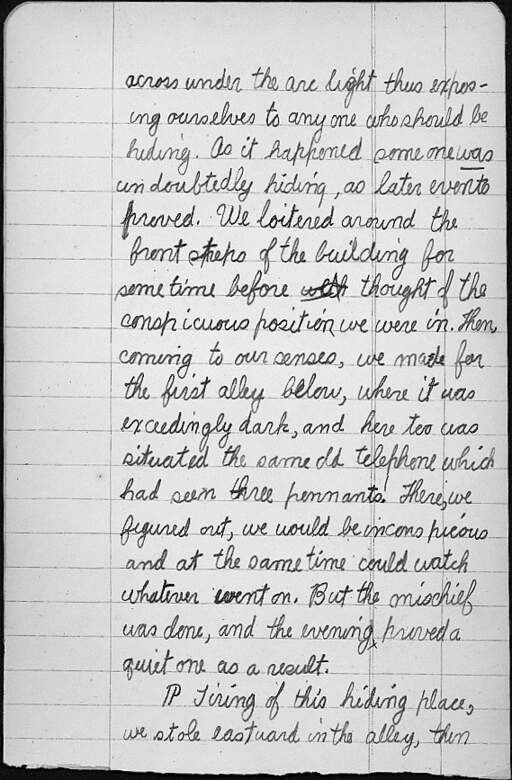 across under the arc light thus expos-
ing ourselves to any one who should be
hiding. As it happened some one was
undoubtedly hiding, as later events
proved. We loitered around the
front steps of the building for
some time before thought of the
conspicuous position we were in. Then,
coming to our senses, we made for
the first alley below, where it was
exceedingly dark, and here too was
situated the same old telephone which
had seen three pennants. There, we
figured out, we would be inconspicous
and at the same time could watch
whatever went on. But the mischief
was done, and the evening proved a
quiet one as a result.
IP Tiring of this hiding place,
we stole eastward in the alley, then